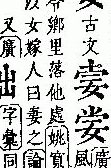 古文
令鄉里落他處姚寬
以女嫁人曰妻之論
又廣
字彙同